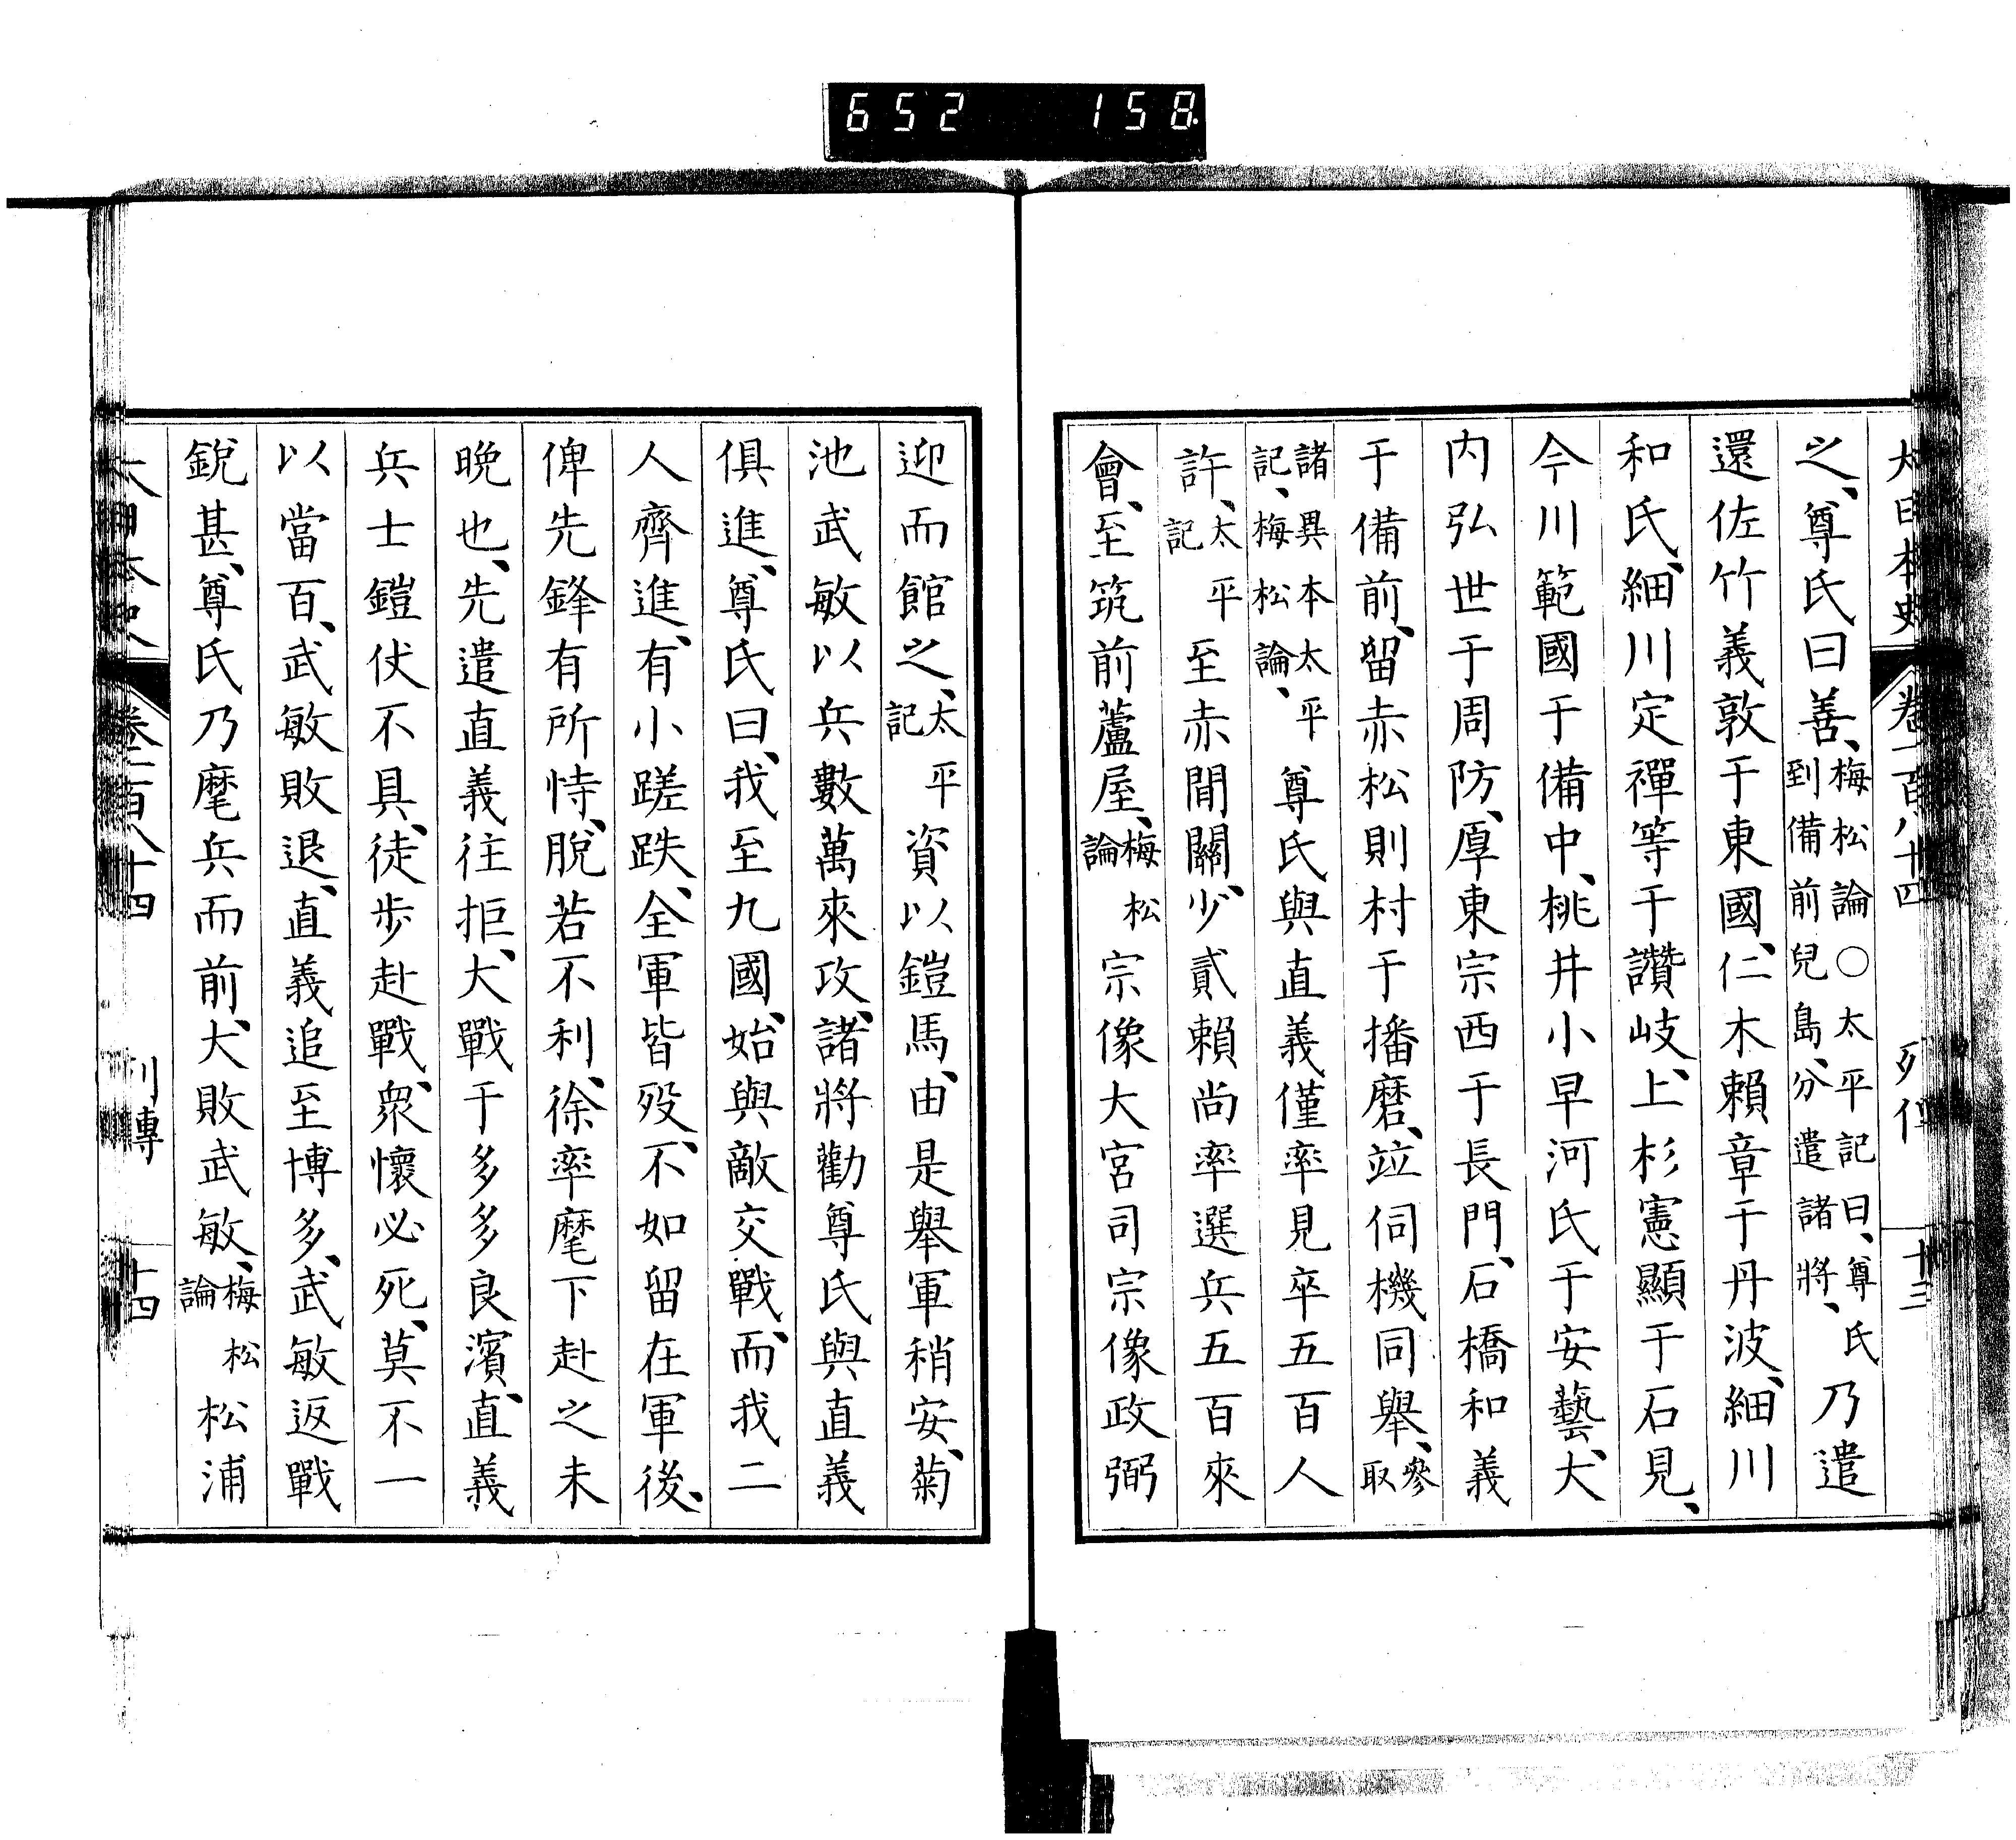 652 158
大日本史 卷一百八十四 列傳 十三
之、尊氏曰善、梅松論○太平記曰、尊氏到備前兒島、分遣諸將、乃遣
還佐竹義敦于東國、仁木賴章于丹波、細川
和氏、細川定禪等于讚岐、上杉憲顯于石見、
今川範國于備中、桃井小早河氏于安藝、大
内弘世于周防、厚東宗西于長門、石橋和義
于備前、留赤松則村于播磨、竝伺機同舉、參取
諸異本太平記、梅松論、尊氏與直義僅率見卒五百人
許、太平記至赤間關、少貳賴尚率選兵五百來
會、至筑前蘆屋、梅松論宗像大宮司宗像政弼
迎而館之、太平記資以鎧馬、由是舉軍稍安、菊
池武敏以兵數萬來攻、諸將勸尊氏與直義
俱進、尊氏曰、我至九國、始與敵交戰、而我二
人齊進、有小蹉跌、全軍皆歿、不如留在軍後、
俾先鋒有所恃、脫若不利、徐率麾下赴之未
晚也、先遣直義往拒、大戰于多多良濱、直義
兵士鎧仗不具、徒步赴戰、衆懷必死、莫不一
以當百、武敏敗退、直義追至博多、武敏返戰
銳甚、尊氏乃麾兵而前、大敗武敏、梅松論松浦
大日本史 卷一百八十四 列傳 十四